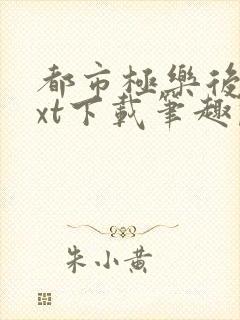 都市極樂後
xt下載筆趣
朱小黃